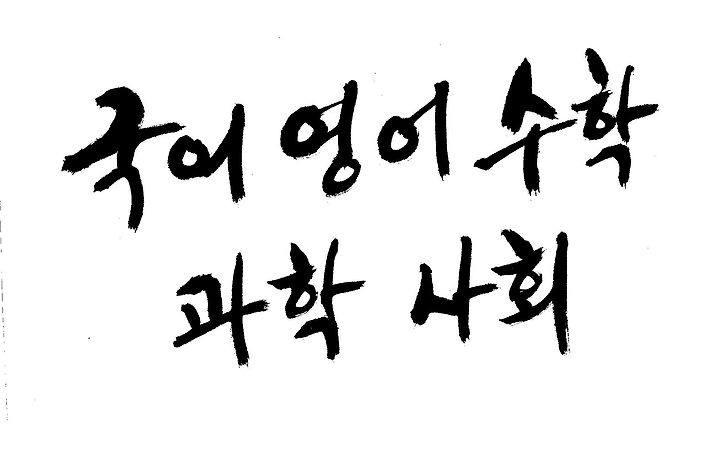 국어 영어 수학
과학 사회